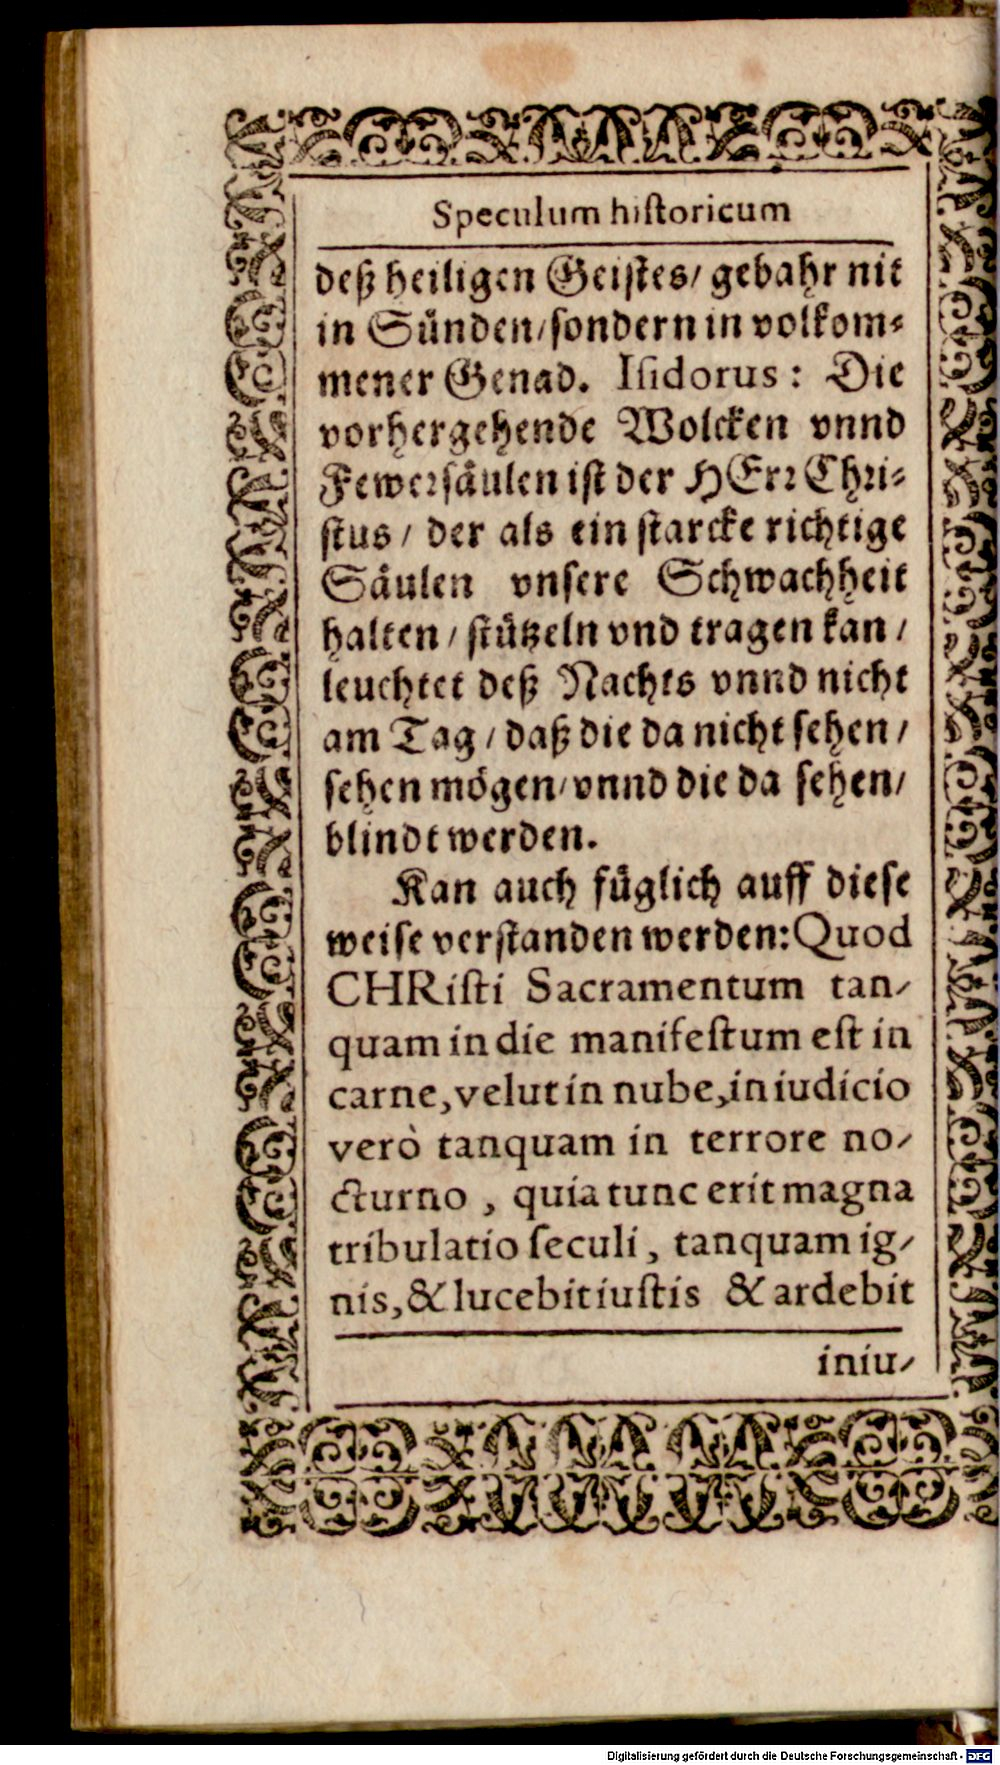 Speculum historicum
deß heiligen Geistes/ gebahr nit
in Sünden/ sondern in volkom⸗
mener Genad. Isidorus: Die
vorhergehende Wolcken vnnd
Fewersäulen ist der HErr Chri⸗
stus / der als ein starcke richtige
Säulen vnsere Schwachheit
halten / stützeln vnd tragen kan /
leuchtet deß Nachts vnnd nicht
am Tag / daß die da nicht sehen /
sehen mögen/ vnnd die da sehen/
blindt werden.
Kan auch füglich auff diese
weise verstanden werden: Quod
CHRisti Sacramentum tan-
quam in die manifestum est in
carne, velut in nube, in iudicio
verò tanquam in terrore no-
cturno , quia tunc erit magna
tribulatio seculi , tanquam ig-
nis, & lucebit iustis & ardebit
iniu-
Digitalisierung gefördert durch die Deutsche Forschungsgemeinschaft - DFG